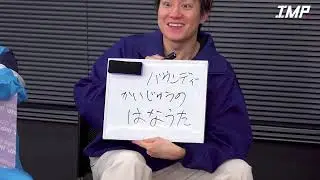 IMP
バウンディー
かいじゅうの
はなうた